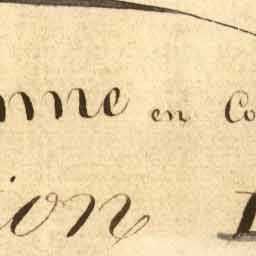 nne en Co
ion